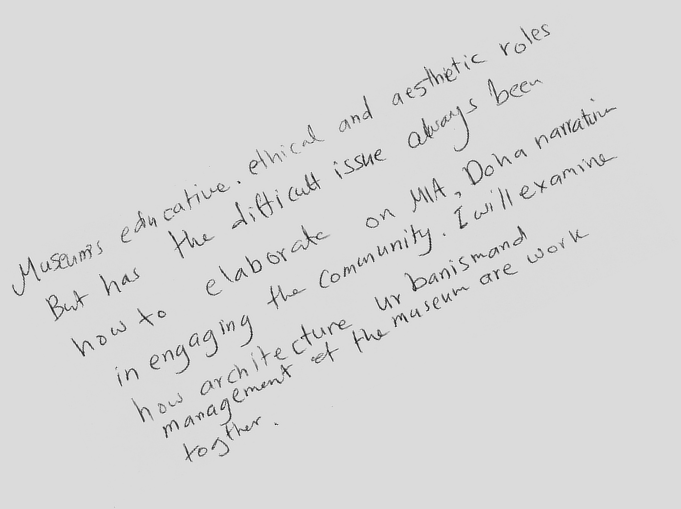 Museums educative, ethical and aesthetic roles
But has the difficult issue always been
how to elaborate on MIA, Doha narration
in engaging the community. I will examine
how architecture urbanismand
management of the museum are work
togther.